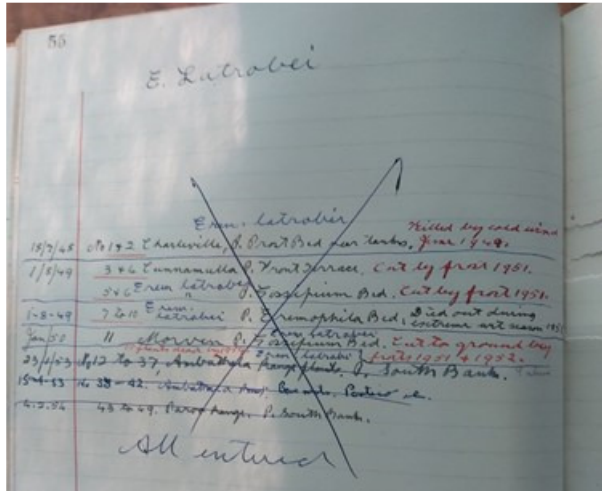 55
E. Latrobei
Erem. latrobei Killed by cold wind
18/7/48 No 1 & 2 Charleville, P. Front Bed near tanks, June 1949.
1/8/49 3 & 4 Cunnamulla P. Front Terrace. Cut by frost 1951.
5 & 6 Erem latrobei P. Gossipium Bed. Cut by frost 1951.
1-8-49 7 to 10 Erem. latrobei P. Eremophila Bed. Died out during extreme wet season
Jan/50 11 Morven P. Gossipium Bed. Cut to ground by
Erem latrobei frosts 1951 & 1952.
23/1/53 No 12 to 37, Ambathala Range plants, P. South Bank.
15-4-53 38-42. Ambathala
4.2.54 43 to 49. Paroo Range, P. South Bank.
All entered